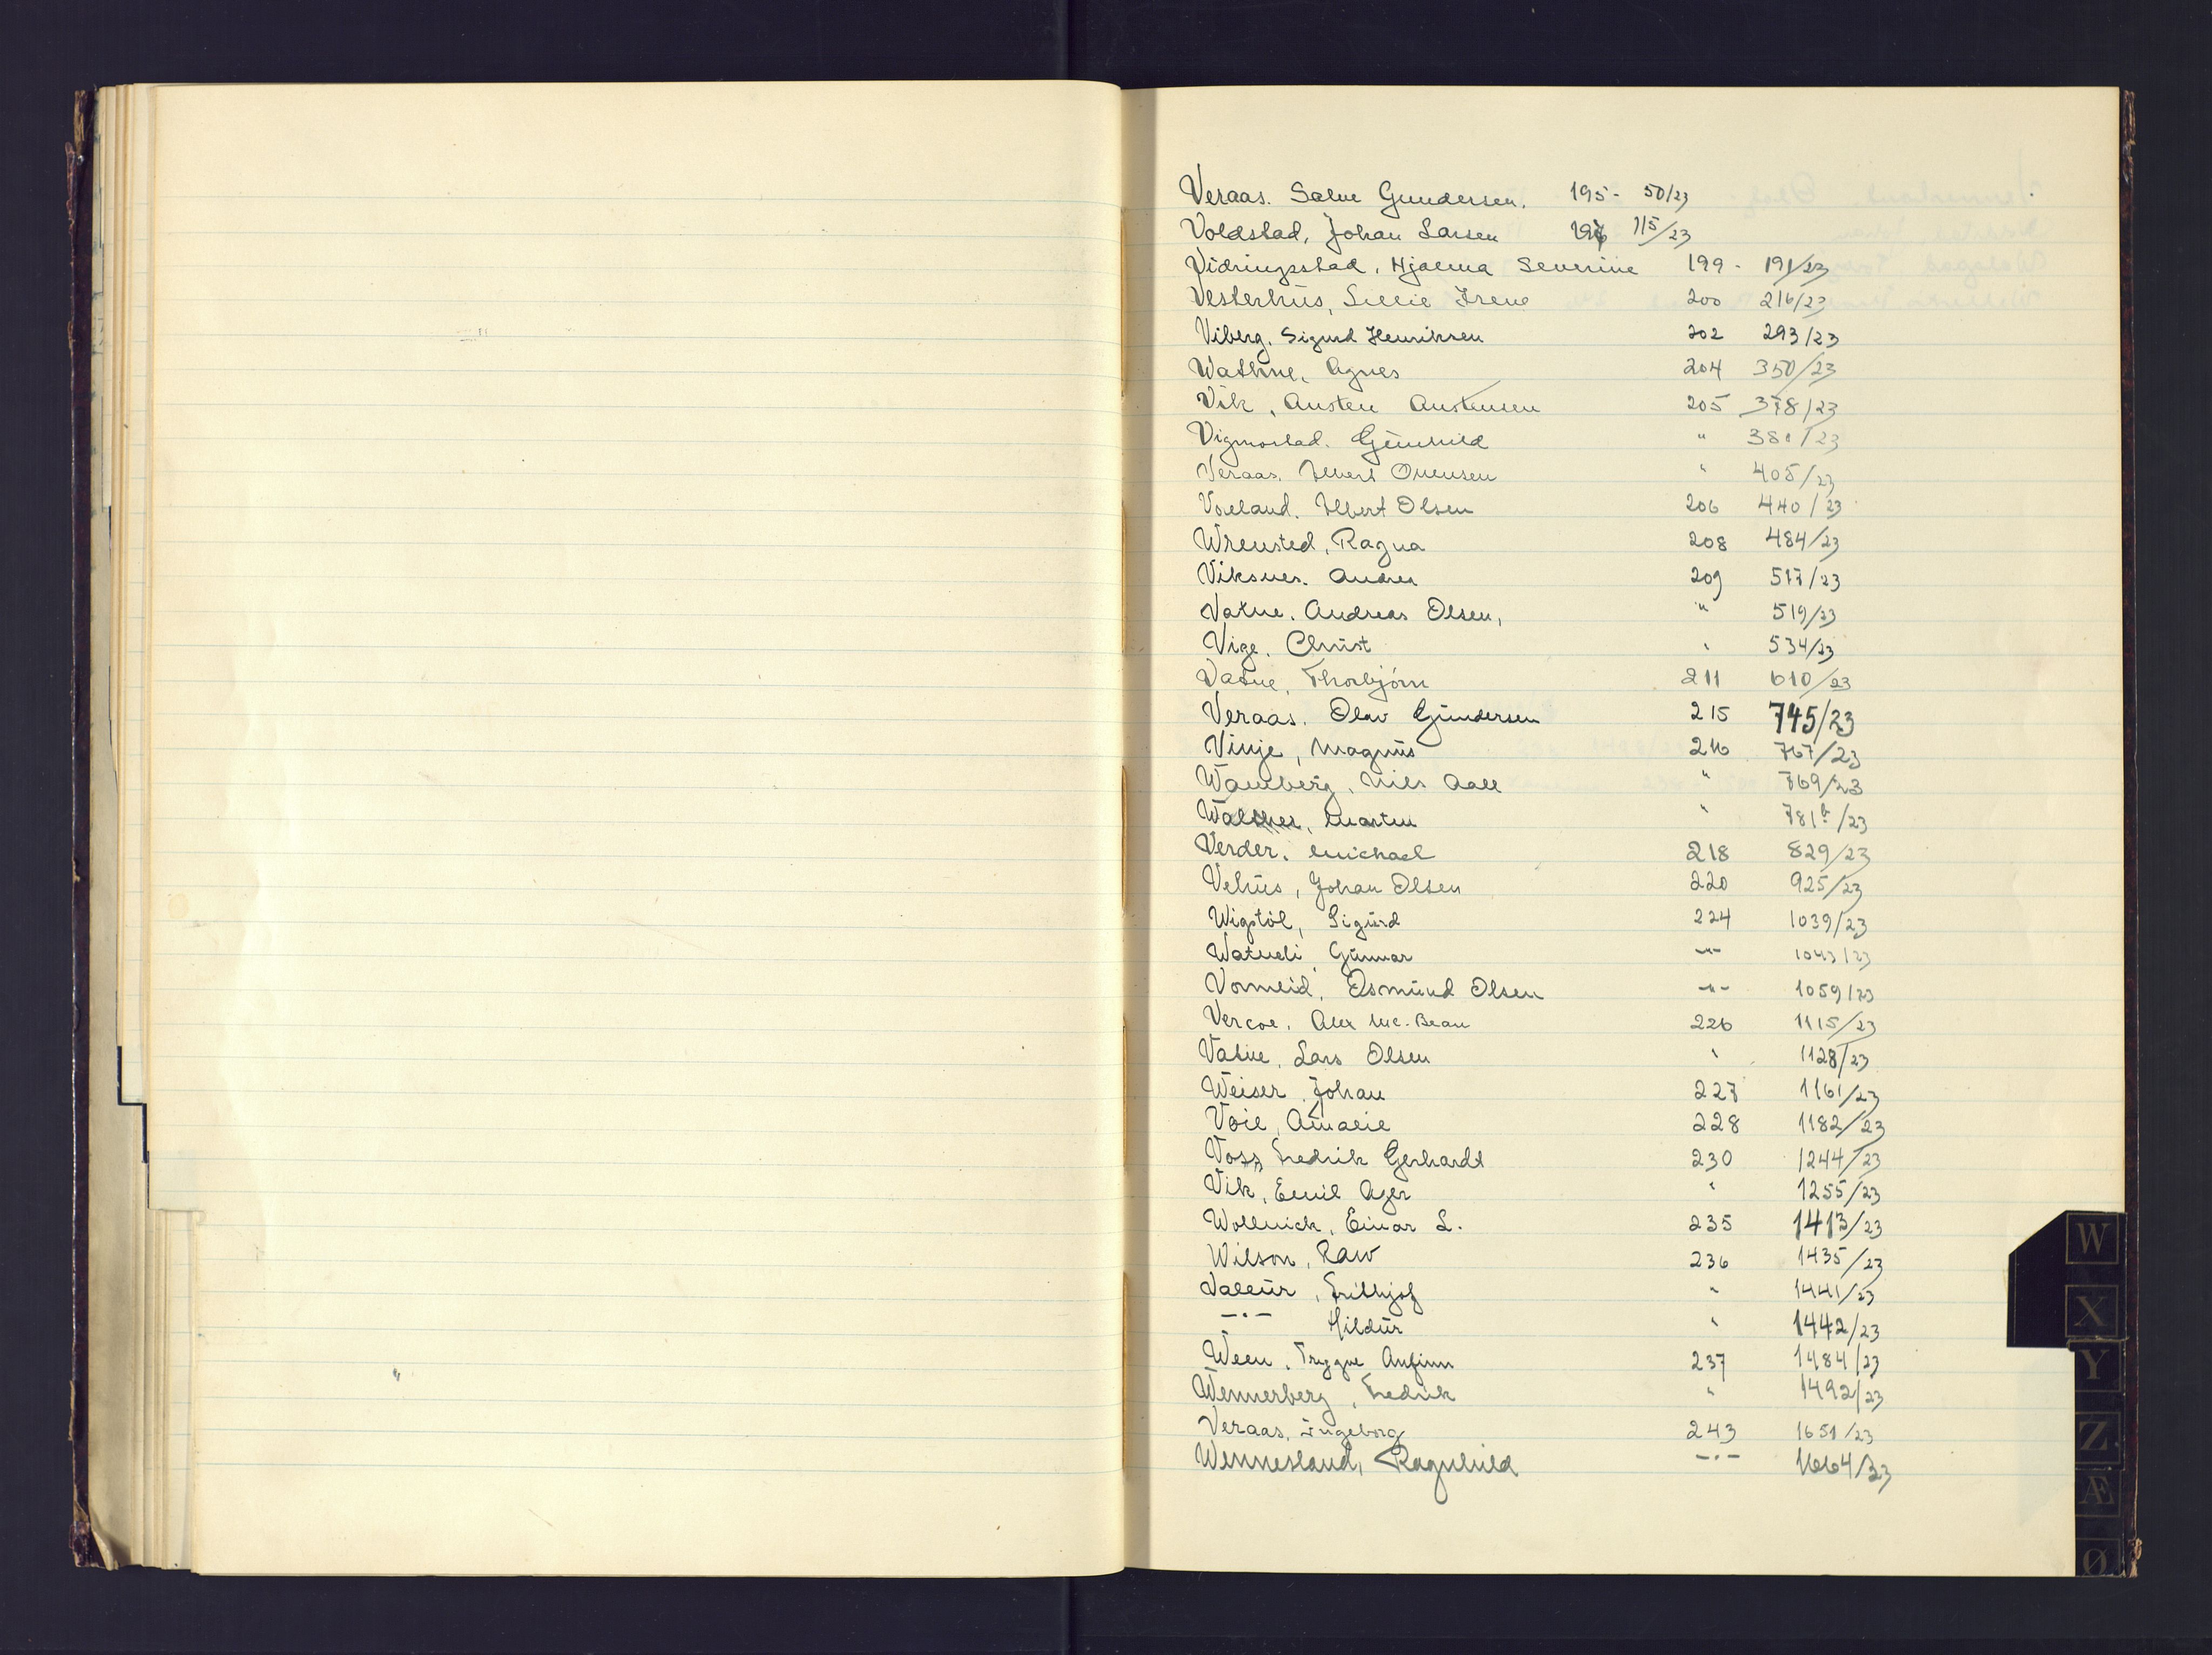 Veraas. Salve Gundersen. 195- 50/23
Voldstad, Johan Larsen 196 115/23
Vidringsstad, Hjalma Severine 199- 191/23
Vesterhus, Lillie Irene 200 216/23
Viberg. Sigurd Henriksen 202 293/23
Wathne, Agnes 204 350/23
Vik, Austen Austensen 205 378/23
Vigmostad. Gunhild " 381/23
Veraas. " 405/23
Voreland. Albert Olsen 206 440/23
Wrensted, Ragna 208 484/23
Viksnes. Andrea 209 517/23
Vatne. Andreas Olsen, " 519/23
Vige. Christ " 534/23
Vatne, Thorbjörn 211 610/23
Veraas. Olav Gundersen 215 745/23
Vinje, Magnus 216 767/23
Wamberg, Nils Aall " 769/23
Walther, Martin " 781b/23
Verder. Michael 218 829/23
Vehus, Johan Olsen 220 925/23
Wigstöl, Sigurd 224 1039/23
Watneli, Gunnar -"- 1043/23
Vormeid, Osmund Olsen -"- 1059/23
Vercoe. Alex Mc. Bean 226 1115/23
Vatne, Lars Olsen " 1128/23
Weiser, Johan 227 1161/23
Voie, Amalie 228 1182/23
Voss, Fredrik Gerhardt 230 1244/23
Vik, Emil Ager " 1255/23
Wollnick, Einar L. 235 1413/23
Wilson, Raw 236 1435/23
Valeur, Frithjof " 1441/23
-"- Hildur " 1442/23
Ween, Trygve Anfinn 237 1484/23
Wennerberg, Fredrik " 1492/23
Veraas, Ingeborg 243 1651/23
Wennesland, Ragnhild -"- 1664/23
W
X
Y
Z
Æ
Ø